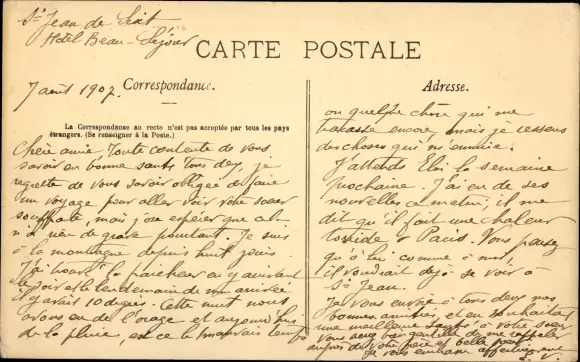 St Jean de Sixt
Hôtel Beau-Séjour
CARTE POSTALE
7 août 1907.
Correspondance.
La Correspondance au recto n'est pas acceptée par tous les pays
étrangers. (Se renseigner à la Poste.)
Chère amie Toute contente de vous
savoir en bonne santé tous deux, je
regrette de vous savoir obligée de faire
un voyage pour aller voir votre sœur
souffrante, mais j'ose espérer que cela
n'a rien de grave pourtant. Je suis
à la montagne depuis huit jours.
J'ai trouvé la fraîcheur en y arrivant
le soir et le lendemain de mon arrivée
il y avait 10 degrés. Cette nuit nous
avons eu de l'orage et aujourd'hui
de la pluie, est ce le mauvais temps
Adresse.
ou quelque chose qui me
tracasse encore, mais je ressens
des choses qui m'ennuie.
J'attends Eloi la semaine
prochaine. J'ai eu de ses
nouvelles ce matin, il me
dit qu'il fait une chaleur
torride à Paris. Vous pensez
qu'à lui comme à moi,
il voudrait déjà se voir à
St Jean.
Je vous envoie à tous deux nos
bonnes amitiés, et en souhaitant
une meilleure santé à votre sœur
Vous serez bien gentille de me
auprès de votre père et belle
Je vous embrasse affectueusement